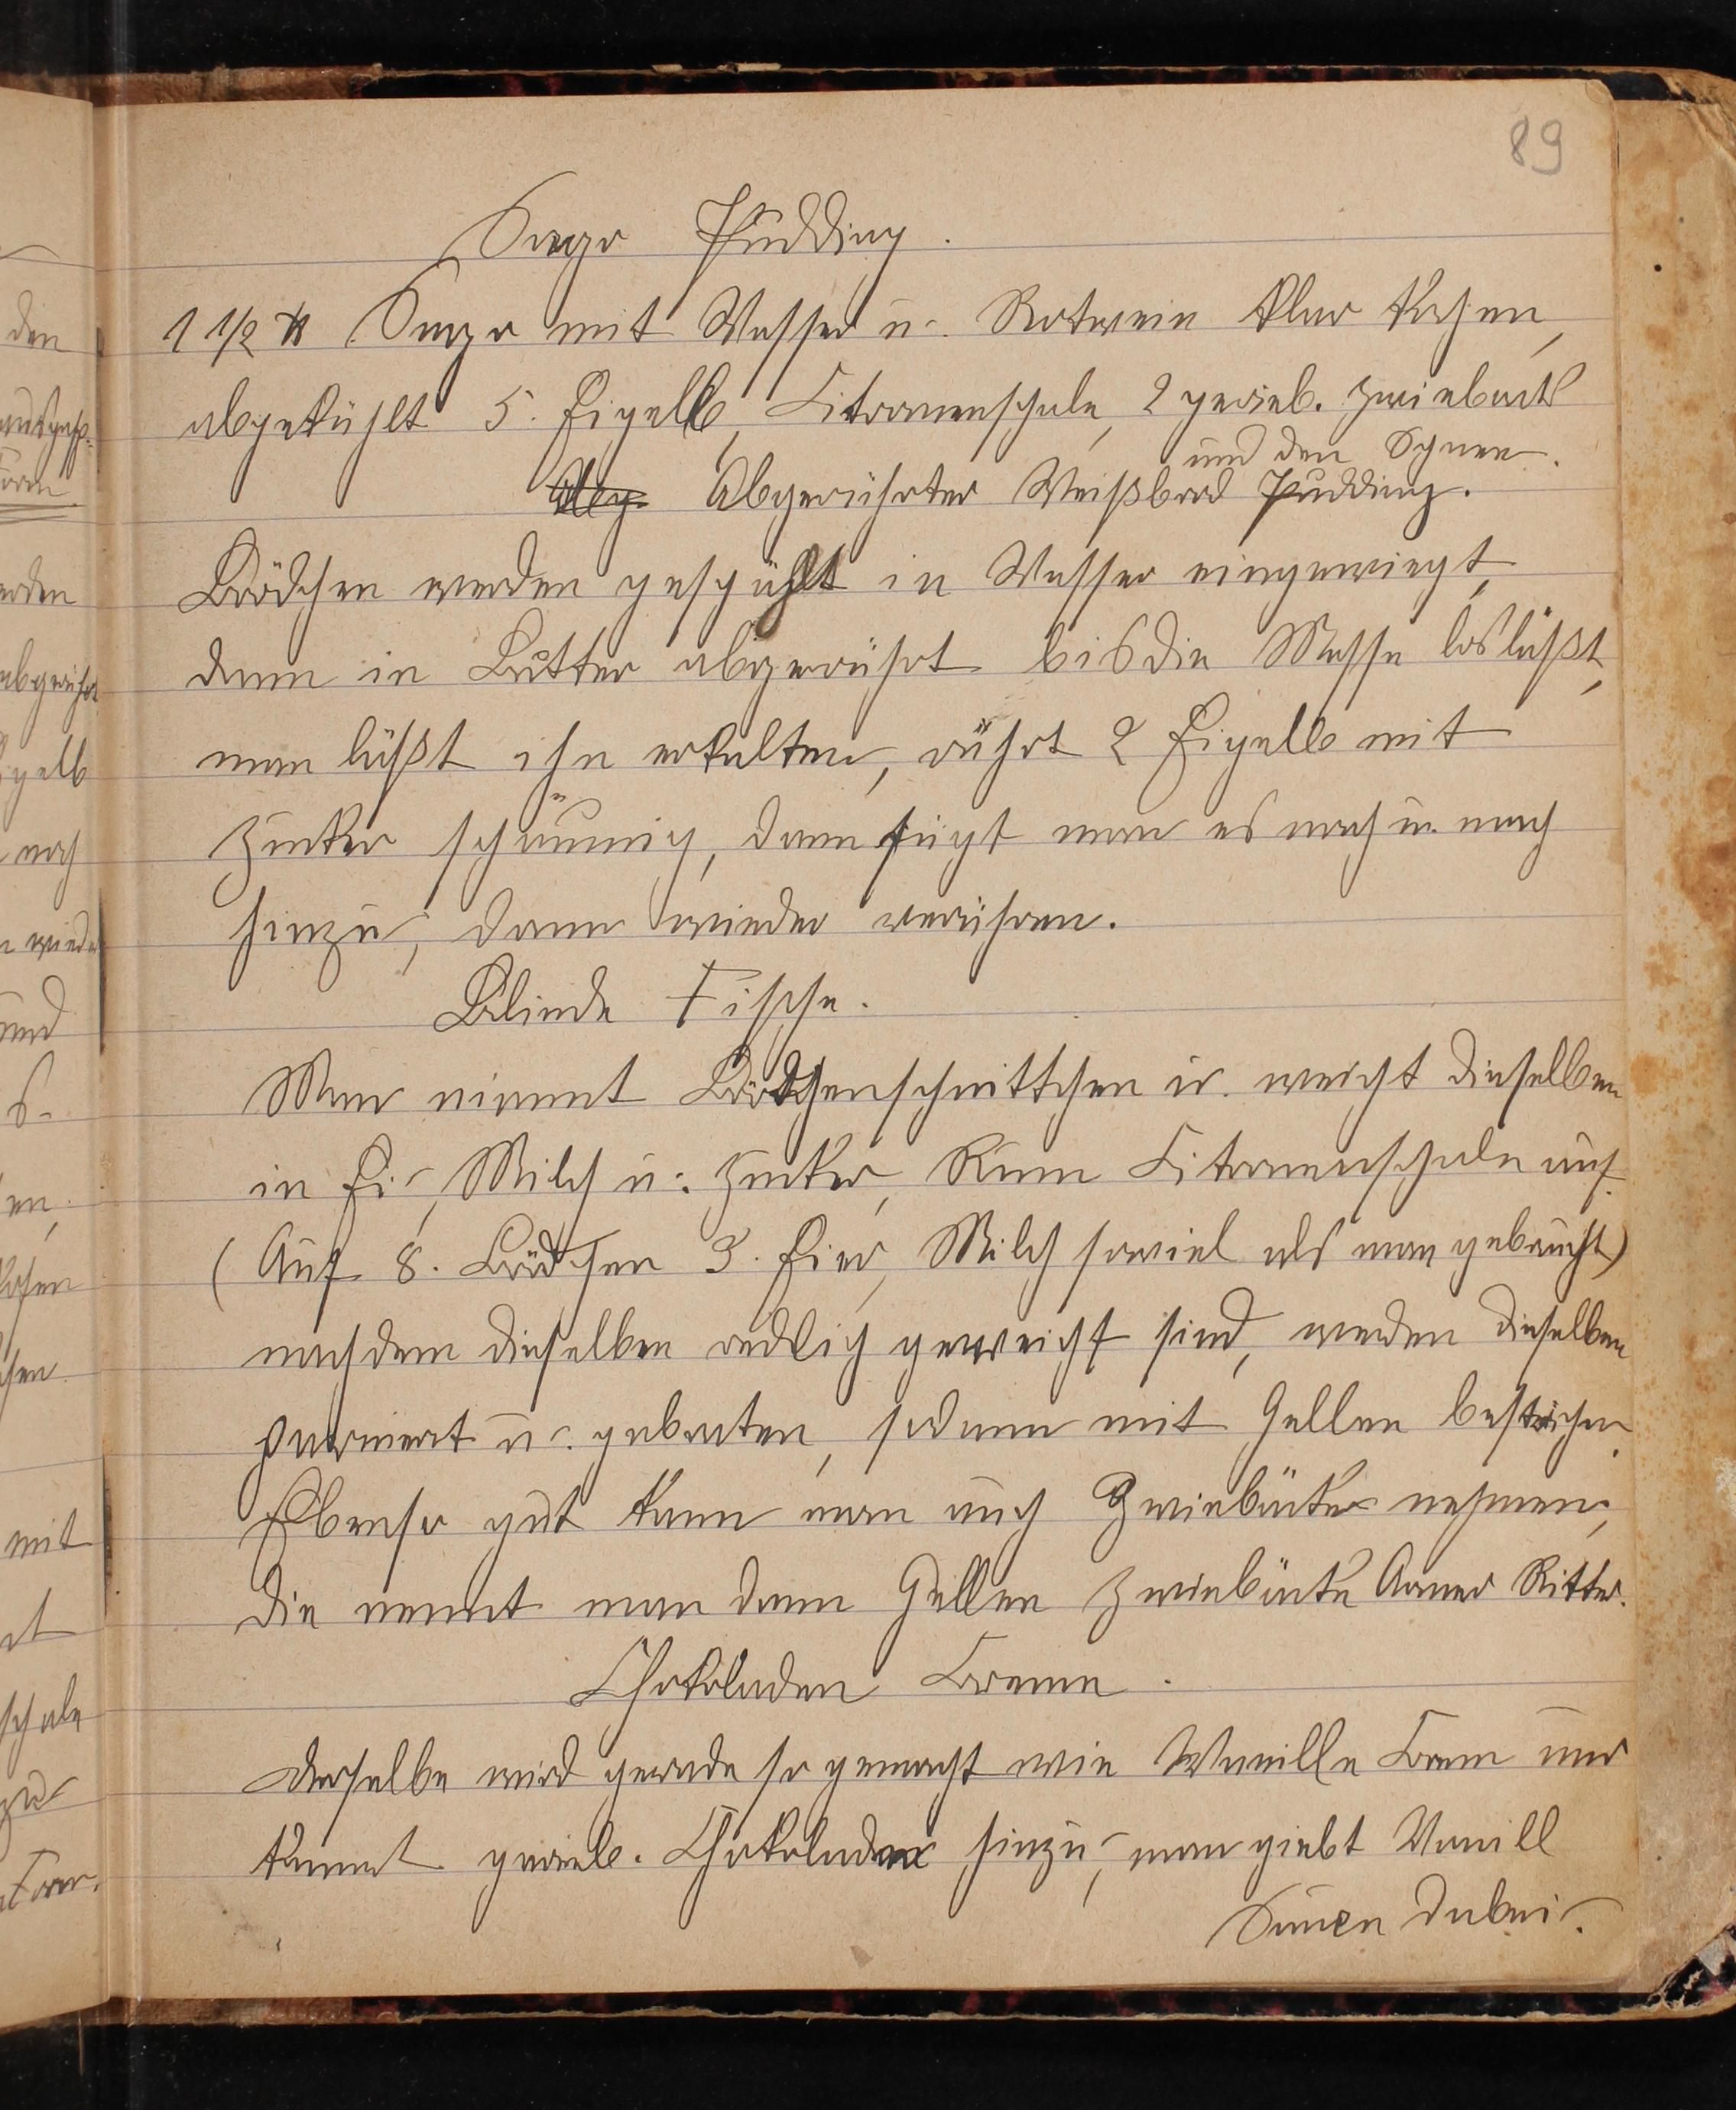 89
Sago Pudding.
1 1/2 ℔ Sago mit Wasser u. Rotwein klar kochen,
abgekühlt 5. Eigelb, Citronenschale, 2 gerieb. Zwieback
und den Schnee.
Abg. Abgerührter Weißbrod Pudding.
Brödchen werden geschählt in Wasser eingeweigt,
dann in Butter abgerührt bis die Masse losläßt,
man läßt ihn erkalten, rührt 2 Eigelb mit
Zucker schäumig, dann fügt man es nach u. nach
hinzu, dann wieder verrühren.
Blinde Fische.
Man nimmt Brödchenschnittchen u. weicht dieselben
in Ei, Milch u. Zucker, Rum Citronenschale auf.
(Auf 8. Brödchen 3. Eier, Milch soviel als man gebraucht)
nachdem dieselben redlich geweicht sind, werden dieselben
paniert u. gebacken, sodann mit Gellee bestrichen.
Ebenso gut kann man auch Zwiebäcke nehmen,
die nennt man dann Gellee Zwiebäcke Armer Ritter.
Chokoladen Creme.
derselbe wird gerade so gemacht wie Vanille Crem nur
kommt gerieb. Chokoladen hinzu, man giebt Vanill
Saucen dabei.
den
erden
abgerührt
igelb
nach
wieder
und
kochen
mit
schale
Form.